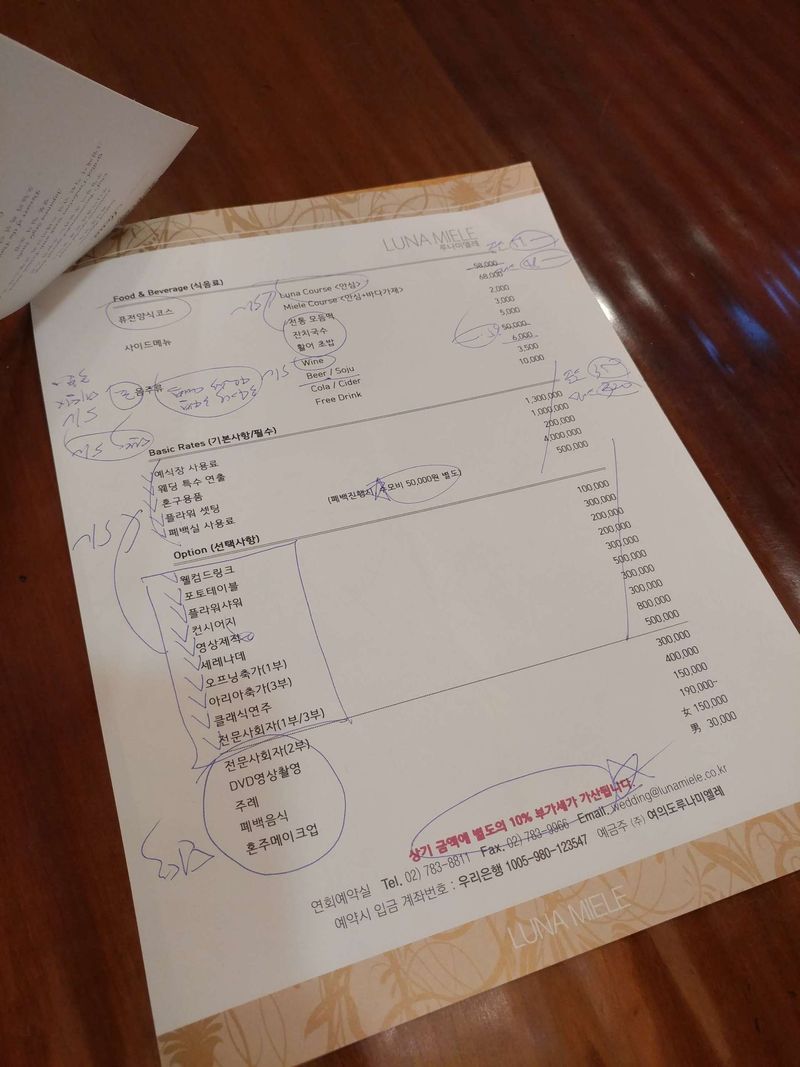 LUNA MIELE
루나미엘레
Food & Beverage (식음료)
퓨전양식코스 Luna Course <안심> 58,000
Miele Course <안심+바다가재> 68,000
사이드메뉴 전통 모듬떡 2,000
잔치국수 3,000
활어 초밥 5,000
음주류 Wine 50,000
Beer / Soju 6,000
Cola / Cider 3,500
Free Drink 10,000
Basic Rates (기본사항/필수)
예식장 사용료 1,300,000
웨딩 특수 연출 1,000,000
혼구용품 200,000
플라워 셋팅 4,000,000
폐백실 사용료 (폐백진행시 수모비 50,000원 별도) 500,000
Option (선택사항)
웰컴드링크 100,000
포토테이블 300,000
플라워샤워 200,000
컨시어지 200,000
영상제작 300,000
세레나데 500,000
오프닝축가(1부) 300,000
아리아축가(3부) 300,000
클래식연주 800,000
전문사회자(1부/3부) 500,000
전문사회자(2부) 300,000
DVD영상촬영 400,000
주례 150,000
폐백음식 190,000~
혼주메이크업 女 150,000
男 30,000
상기 금액에 별도의 10% 부가세가 가산됩니다.
연회예약실 Tel. 02) 783-8811 Fax. 02) 783-9966 Email. wedding@lunamiele.co.kr
예약시 입금 계좌번호 : 우리은행 1005-980-123547 예금주 (주) 여의도루나미엘레
LUNA MIELE